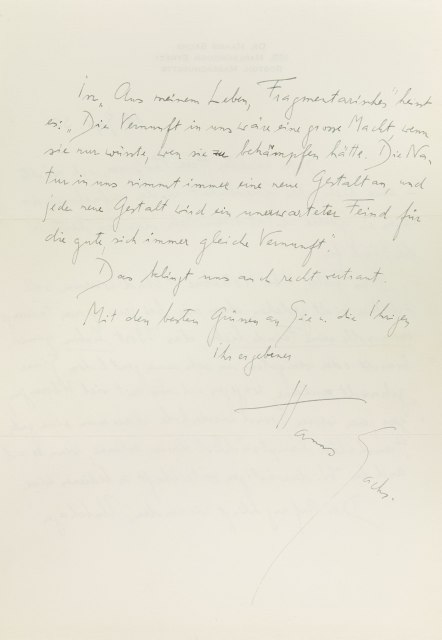 In „Aus meinem Leben, Fragmentarisches" heisst
es: „Die Vernunft in uns wäre eine grosse Macht, wenn
sie nur wüsste, wen sie zu bekämpfen hätte. Die Na-
tur in uns nimmt immer eine neue Gestalt an, und
jede neue Gestalt wird ein unerwarteter Feind für
die gute, sich immer gleiche Vernunft".
Das klingt uns auch recht vertraut.
Mit den besten Grüssen an Sie u. die Ihrigen
Ihr ergebener
Hanns Sachs.